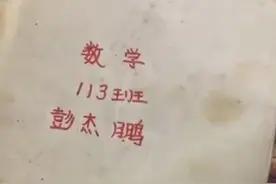 数学
113班
彭杰鹏